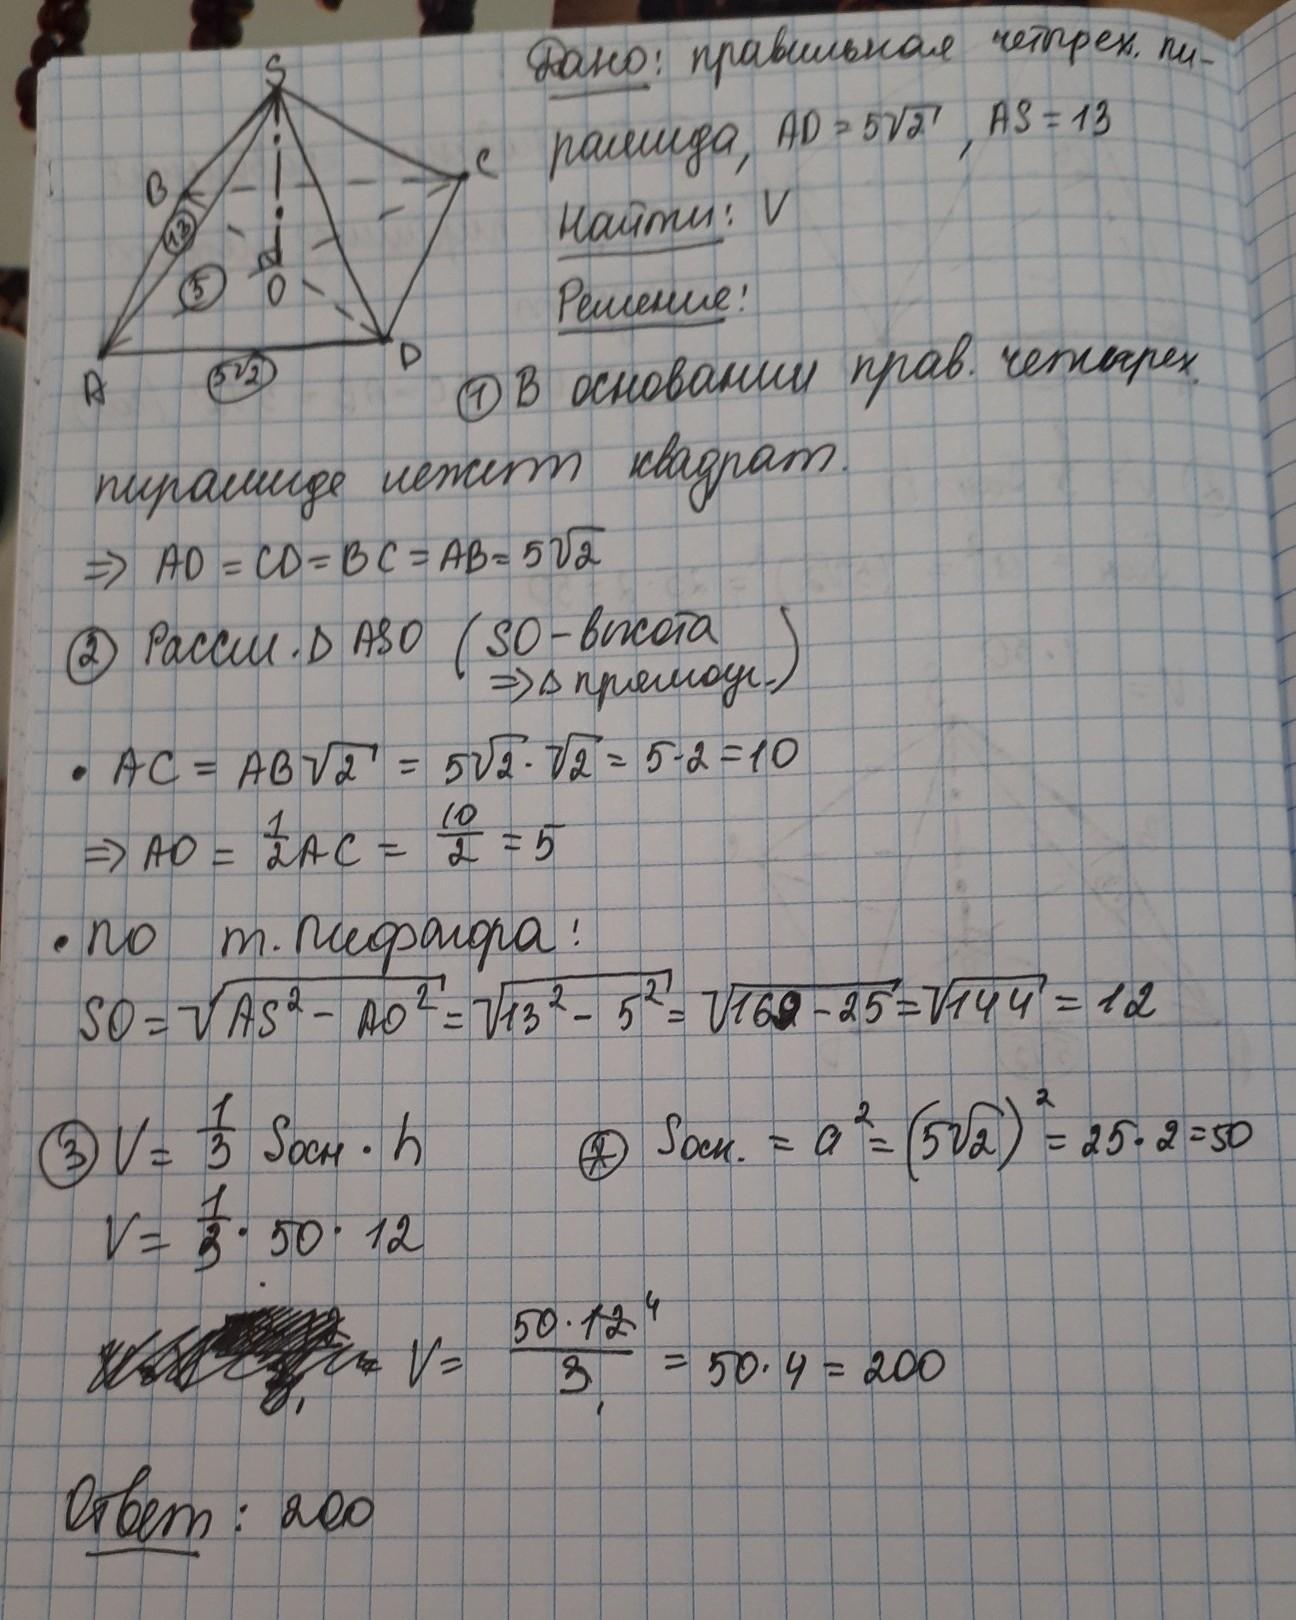 S
B
C
13
5
O
A
5√2
D
Дано: правильная четырех. пи-
рамида, AD = 5√2, AS = 13
Найти: V
Решение:
① В основании прав. четырех.
пирамиде лежит квадрат.
⇒ AD = CD = BC = AB = 5√2
② Рассм. Δ ASO (SO – высота
⇒ Δ прямоуг.)
• AC = AB√2 = 5√2 · √2 = 5·2 = 10
⇒ AO = 1/2 AC = 10/2 = 5
• по т. Пифагора:
SO = √(AS² – AO²) = √(13² – 5²) = √(169 – 25) = √144 = 12
③ V = 1/3 Sосн · h
Sосн. = a² = (5√2)² = 25·2 = 50
V = 1/3 · 50 · 12
V = 50·12⁴/3₁ = 50·4 = 200
Ответ: 200